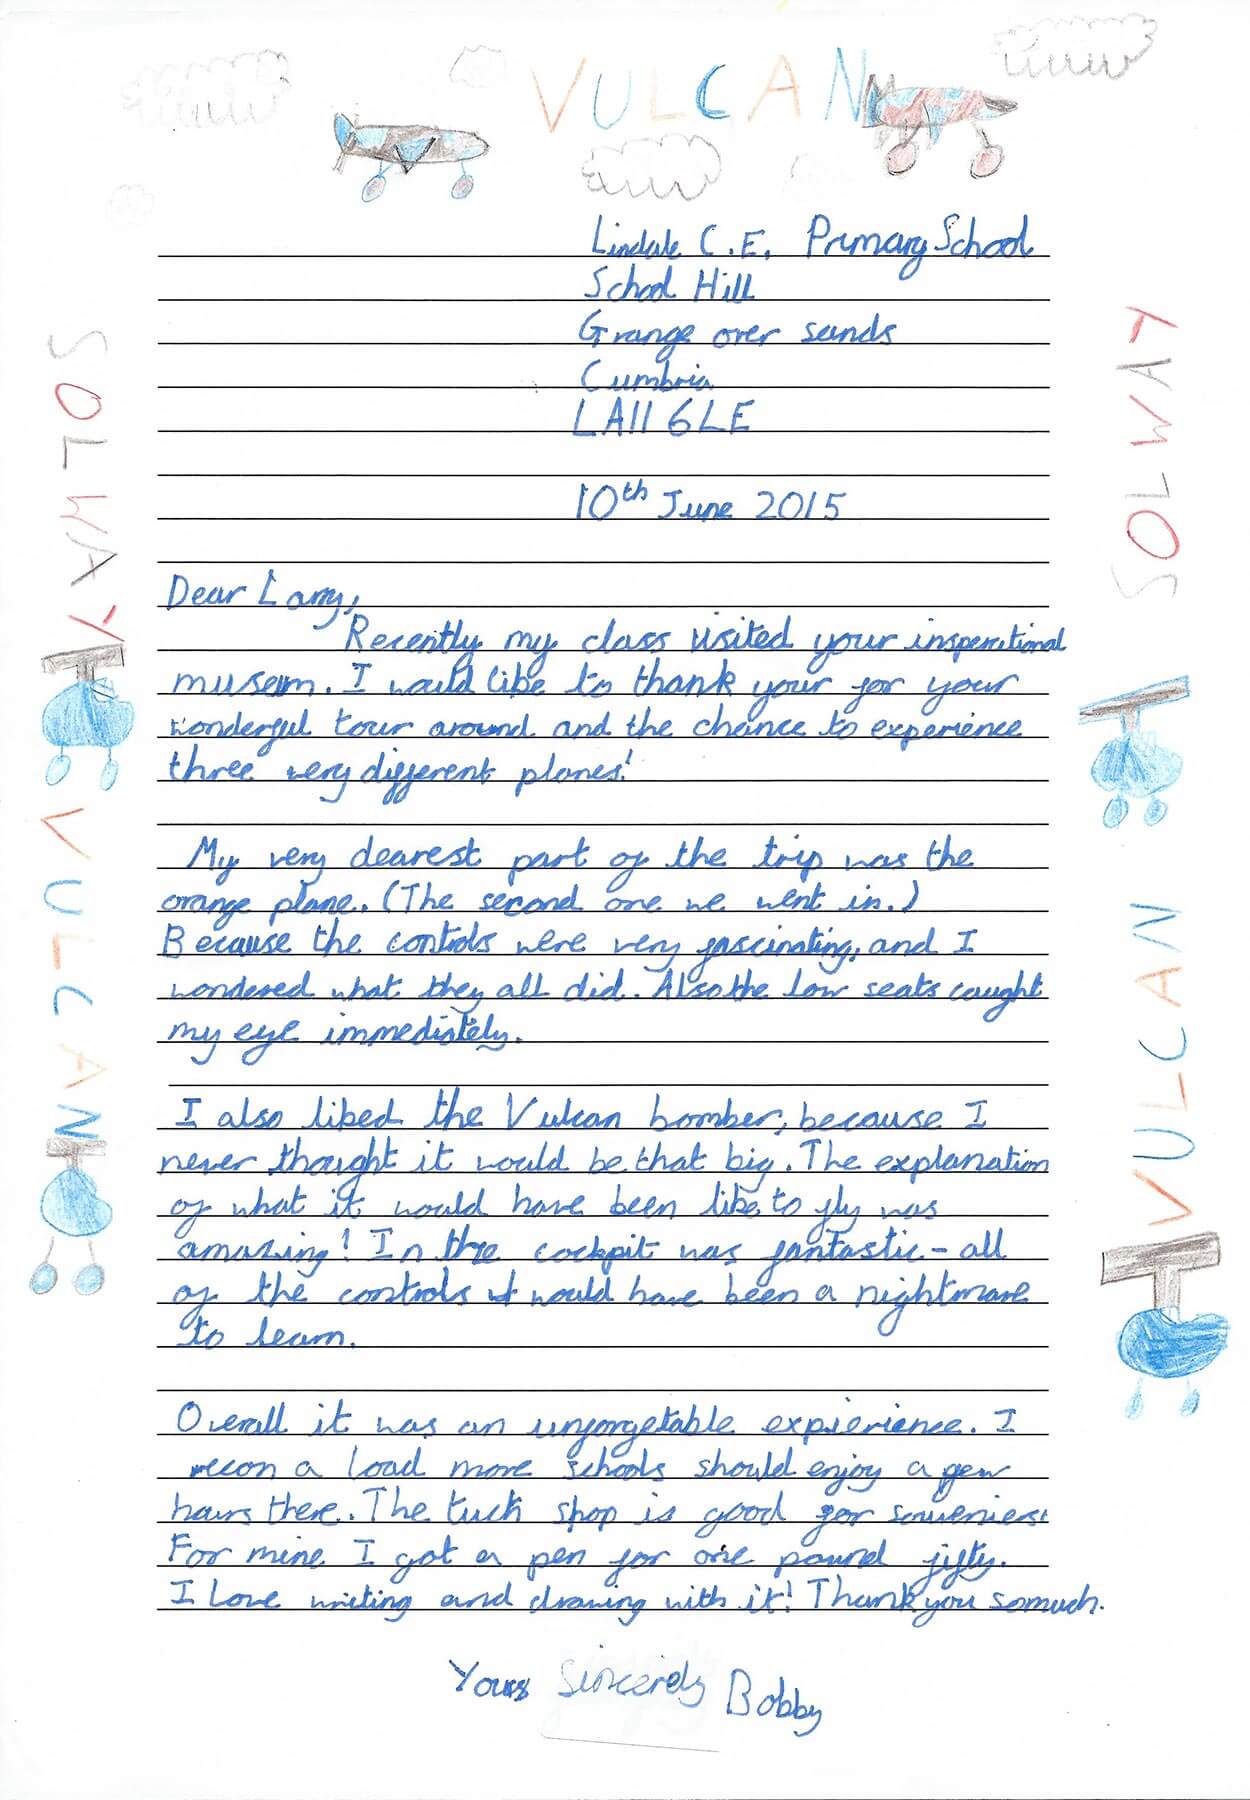 VULCAN
Lindale C.E. Primary School
School Hill
Grange over sands
Cumbria
LA11 6LE
10th June 2015
Dear Larry,
Recently my class visited your insperational
museum. I would like to thank your for your
wonderful tour around and the chance to experience
three very different planes!
My very dearest part of the trip was the
orange plane. (The second one we went in.)
Because the controls were very fascinating, and I
wondered what they all did. Also the low seats caught
my eye immediately.
I also liked the Vulcan bomber, because I
never thought it would be that big. The explanation
of what it would have been like to fly was
amazing! In the cockpit was fantastic - all
of the controls it would have been a nightmare
to learn.
Overall it was an unforgetable expierience. I
recon a load more schools should enjoy a few
hours there. The tuck shop is good for souveniers!
For mine I got a pen for one pound fifty.
I love writing and drawing with it! Thank you so much.
Yours Sincerely Bobby
SOLWAY
VULCAN
SOLWAY
VULCAN